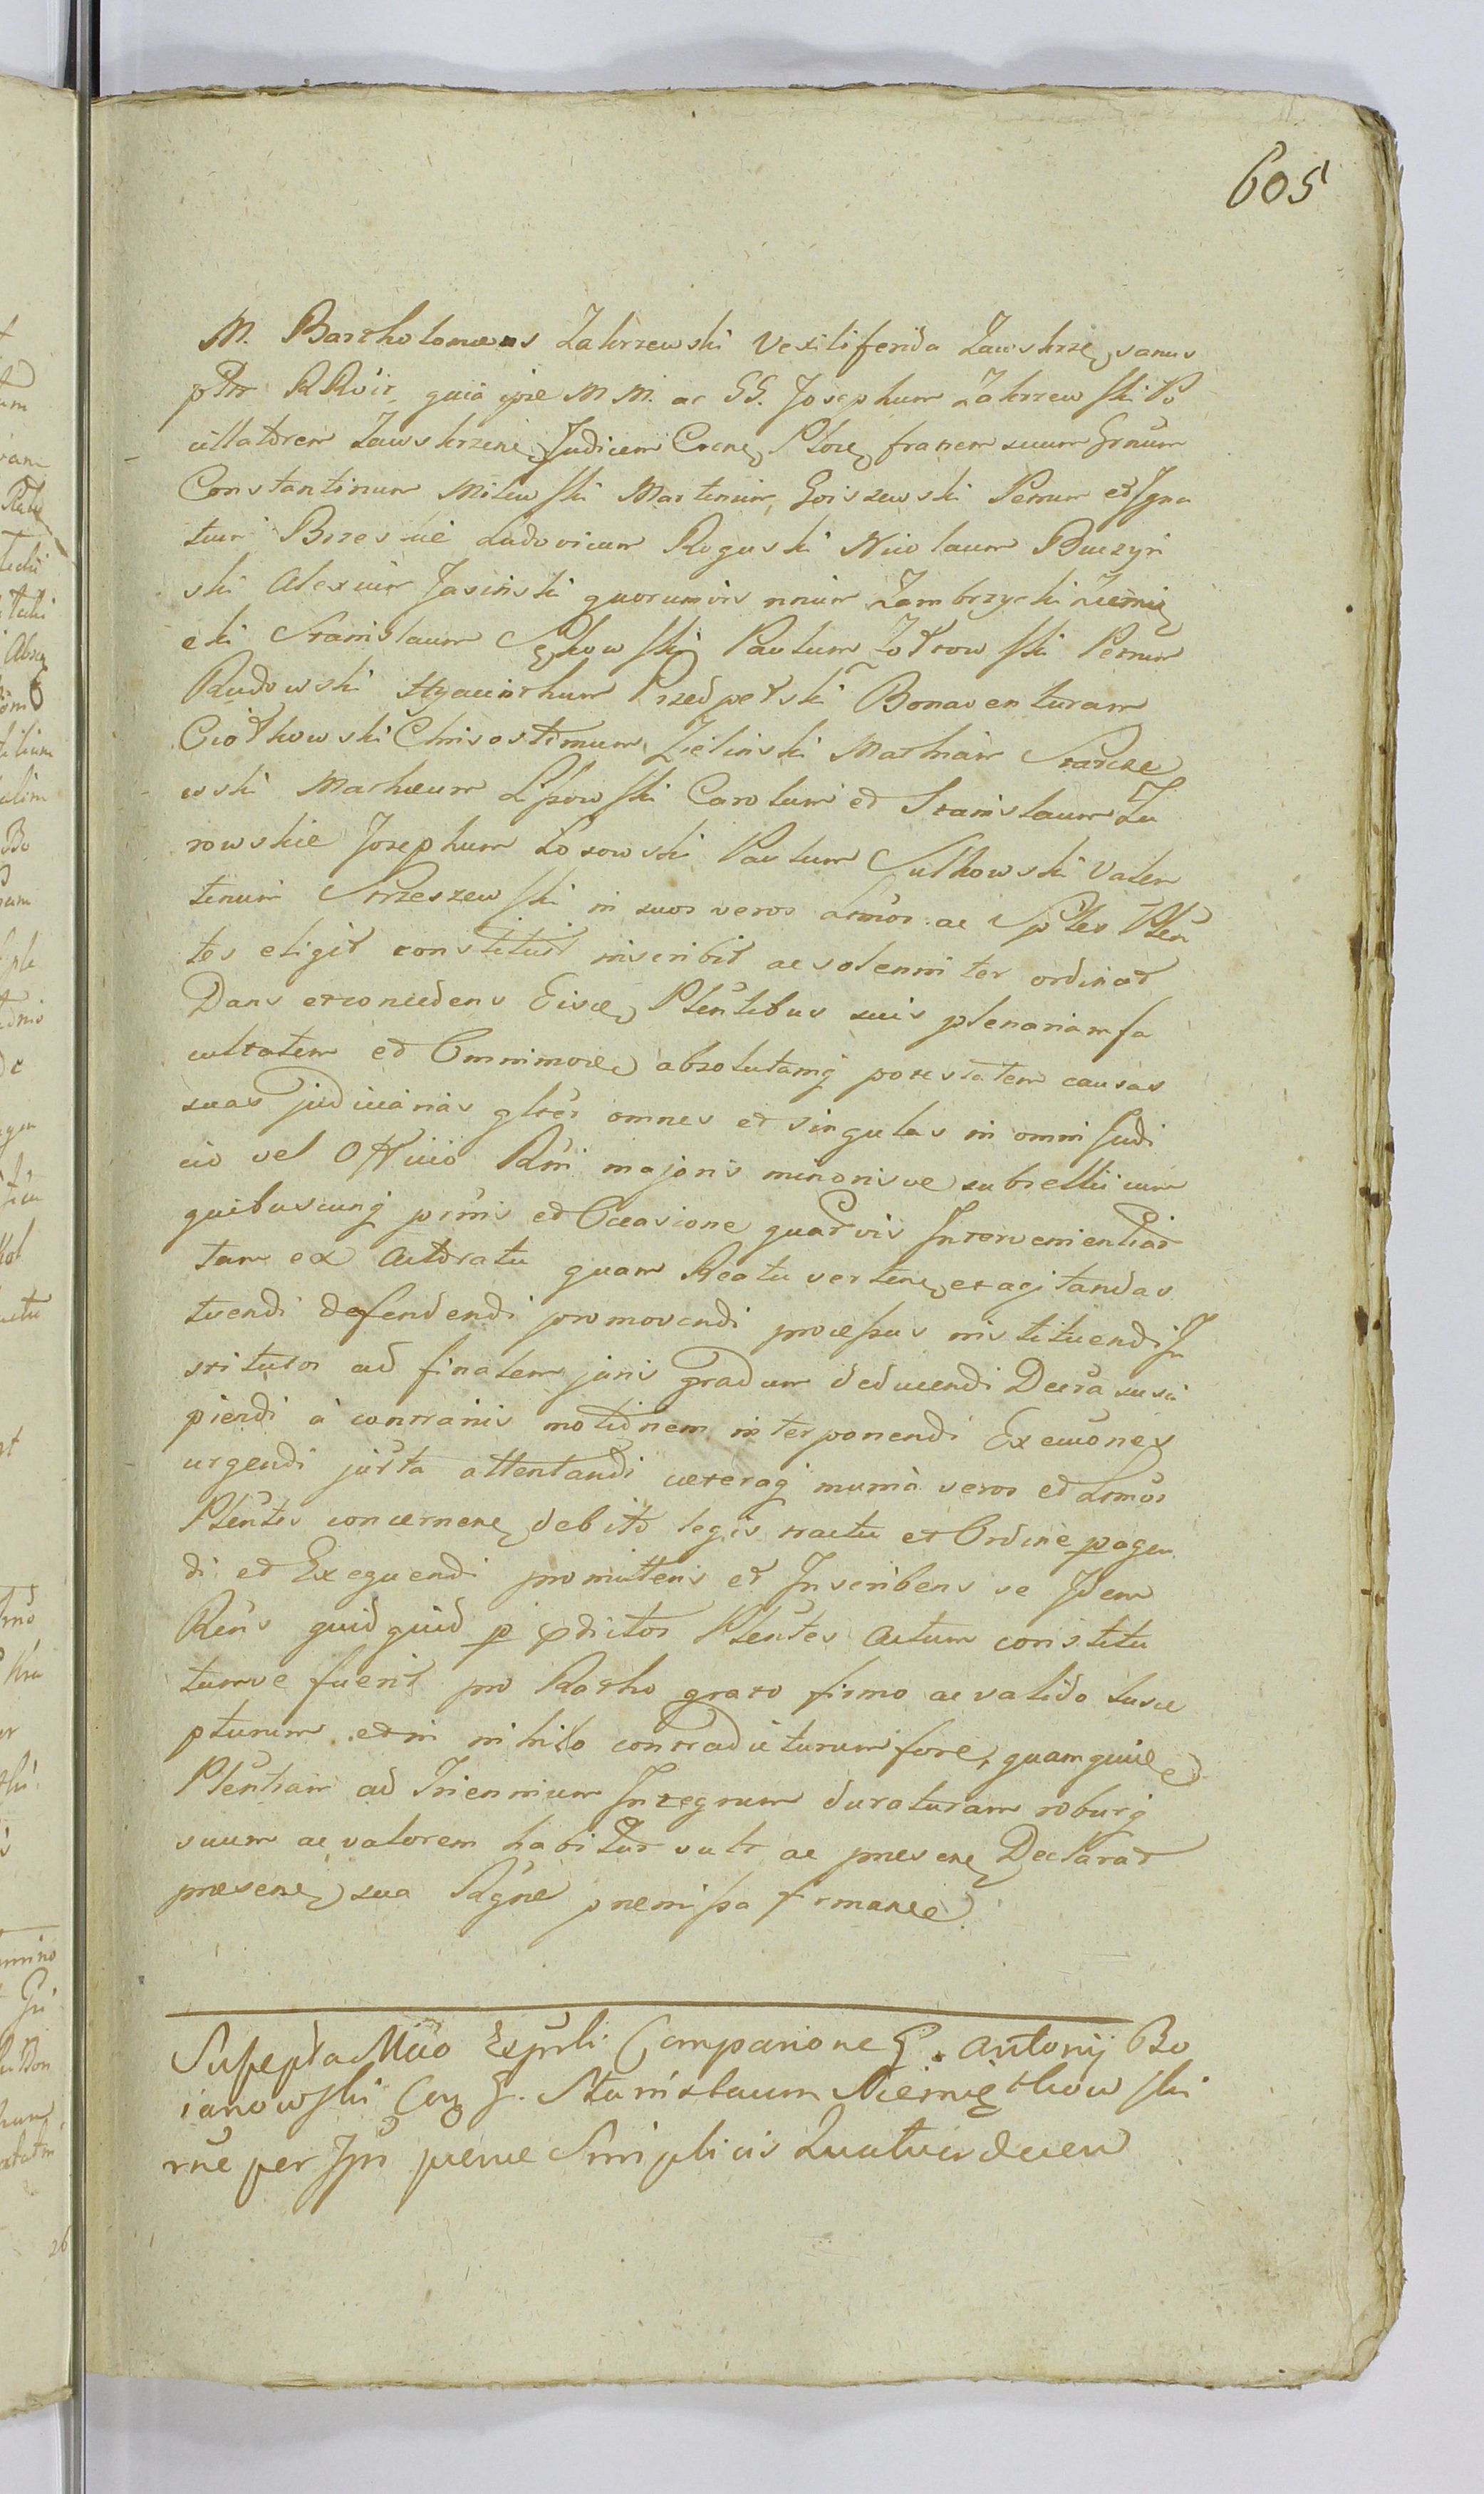 605
M. Bartholomæus Zakrzewski Vexiliferida Zawskrzę sanus
pttr RRóit quia ipse M M. ac GG. Josephum Zakrzewski Po
cillatorem Zawskrzenę Judicem Crenę Plocę fratrem suum Grnum
Constantinum Milewski Martinum Goiszewski Petrum et Igna
tium Brzeskie Ludovicum Roguski Nicolaum Buczyń
ski Alexium Jasinski quorumvis nnium Zambrzycki Ziemię
cki Stanislaum Sękowski Paulum Żółtowski Petrum
Rudowski Hyacinthum Przedpełski Bonaventuram
Ciółkowski Chrisostomum Zielinski Mathiam Starcze
wski Mathæum Lissowski Carolum et Stanislaum Zu
rowskie Josephum Łosowski Paulum Sulkowski Valen
tinum Strzeszewski in suos veros Ltmos ac Sptes Plen
tes eligit constituit inscribit ac solenniter ordinat
Dans et concedens Eisdę Plentibus suis plenariam fa
cultatem et Omnimodę absolutamq potestatem causas
suas judiciarias gltes omnes et singulas in omni Judi
cio vel Officio Rni majoris minorisve subsellii cum
quibuscunq prnis et Occasione quavis Intervenientiae
tam ex Actoratu quam Reatu vertenę et agitandas
tuendi defendendi promovendi processus instituendi In
stitutos ad finalem juris gradum deducendi Decrta susci
piendi à contrariis motionem interponendi Execuones
urgendi juxta attentandi cæteraq munia veros et Ltmos
Plentes concernenę debito legis tractu et Ordine pagen
di et Exequendi promittens et Inscribens se Idem
Rens quidquid p pdictos Plentes Actum constitu
tumve fuerit pro Ratho grato firmo ac valido susce
pturum et in nihilo contradicturum fore, quamquidę
Plentiam ad Triennium Integrum duraturam roburq
suum ac valorem habituram vult ac præsenę Declarat
præsenę sua Rgne præmissa firmanę
Suscepta Mćio Exprli Comparione G. Antonij Bo
ianowski Cor G. Stanislaum Niemię
rne per Ipn Simplicis